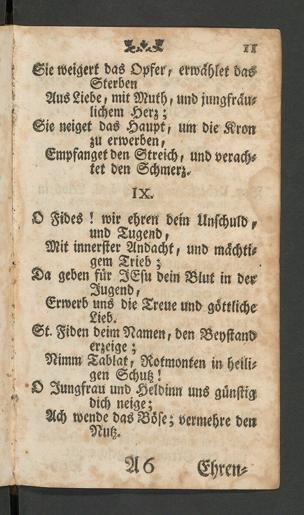 11
Sie weigert das Opfer, erwählet das
Sterben
Aus Liebe, mit Muth, und jungfräu-
lichem Herz;
Sie neiget das Haupt, um die Kron
zu erwerben,
Empfanget den Streich, und verach-
tet den Schmerz.
IX.
O Fides! wir ehren dein Unschuld,
und Tugend,
Mit innerster Andacht, und mächti-
gem Trieb;
Da geben für JEsu dein Blut in der
Jugend,
Erwerb uns die Treue und göttliche
Lieb.
St. Fiden deim Namen, den Beystand
erzeige;
Nimm Tablat, Rotmonten in heili-
gen Schutz!
O Jungfrau und Heldinn uns günstig
dich neige;
Ach wende das Böse; vermehre den
Nutz.
A6 Ehren-